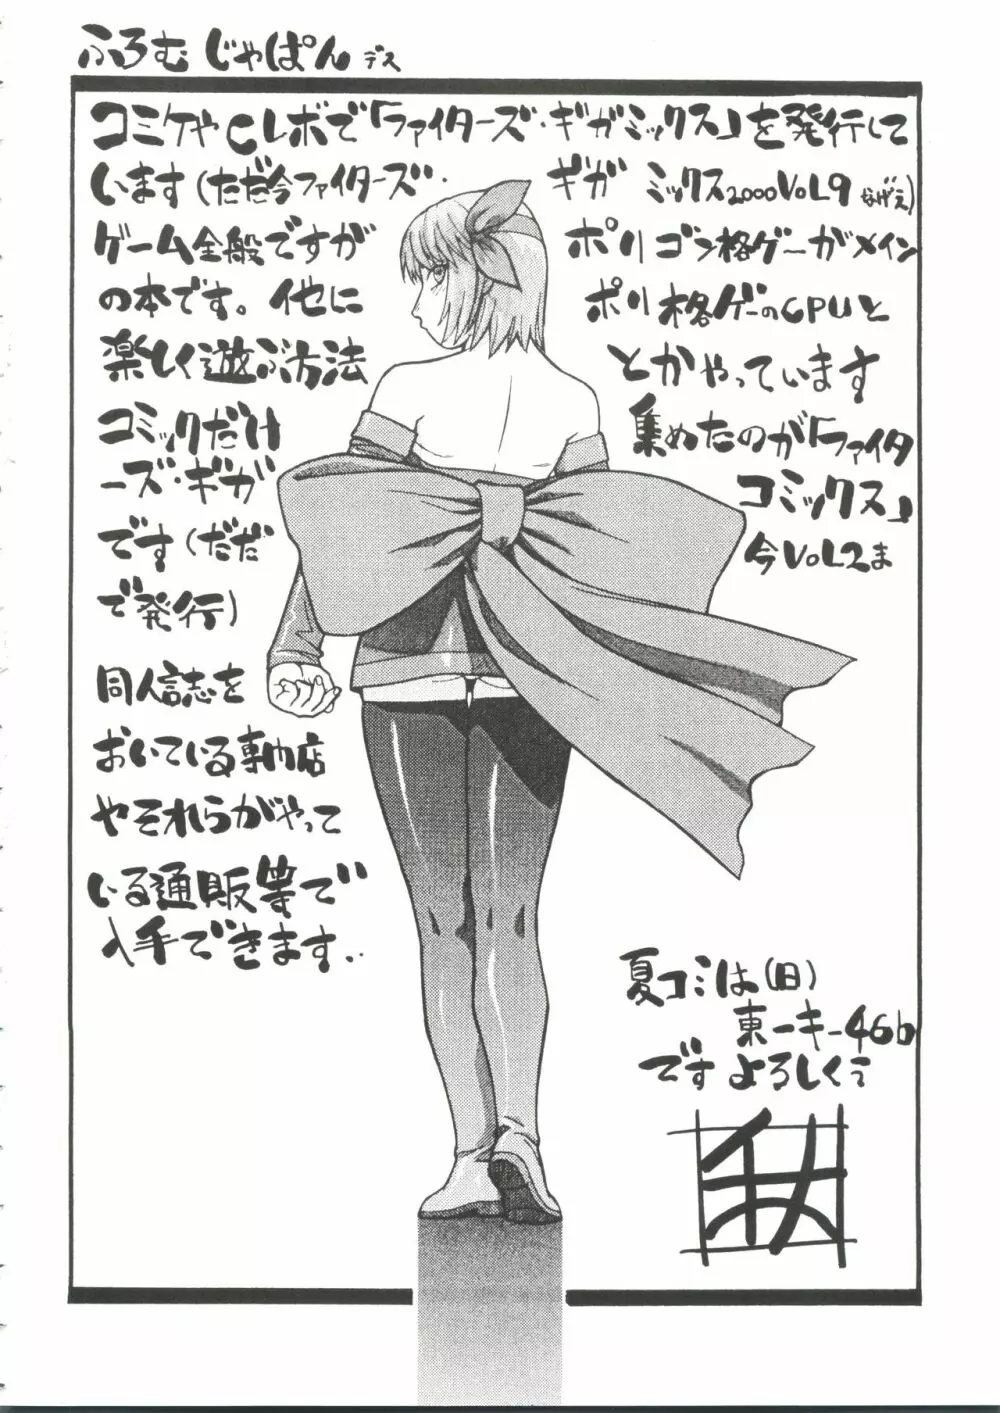 ふろむ じゃぱん デス
コミケやCレボで「ファイターズ・ギガミックス」を発行して
います(ただ今ファイターズ・ギガ ミックス2000VOL9 なげえ)
ゲーム全般ですが ポリゴン格ゲーがメイン
の本です。他に ポリ格ゲーのCPUと
楽しく遊ぶ方法 とかやっています
コミックだけ 集めたのが「ファイタ
ーズ・ギガ コミックス」
です(ただ 今VOL2ま
で発行)
同人誌を
おいている専門店
やそれらがやって
いる通販等で
入手できます..
夏コミは(日)
東-キ-46b
ですよろしくて